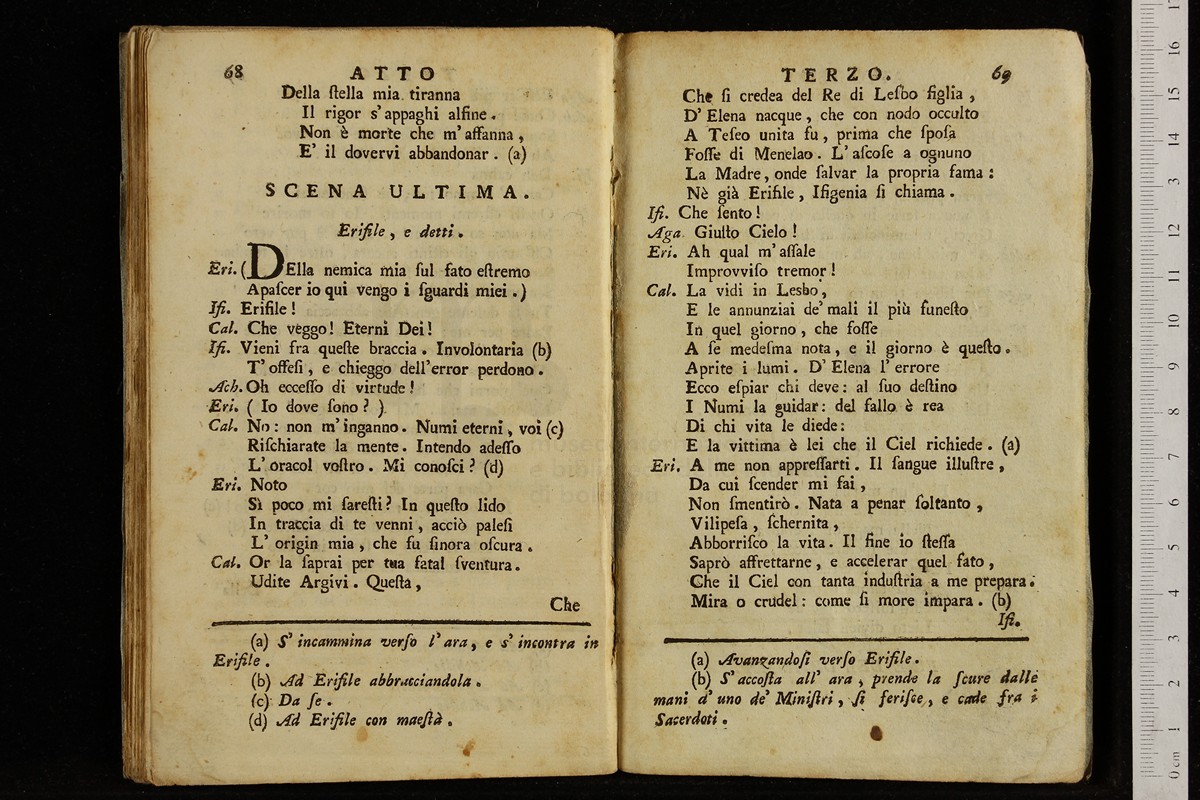 68 ATTO
Della ſtella mia tiranna
Il rigor s' appaghi alfine.
Non è morte che m' affanna,
E' il dovervi abbandonar. (a)
SCENA ULTIMA.
Erifile, e detti.
Eri. (DElla nemica mia ſul fato eſtremo
Apaſcer io qui vengo i ſguardi miei.)
Ifi. Erifile!
Cal. Che veggo! Eterni Dei!
Ifi. Vieni fra queſte braccia. Involontaria (b)
T' offeſi, e chieggo dell'error perdono.
Ach. Oh ecceſſo di virtude!
Eri. ( Io dove ſono? )
Cal. No: non m' inganno. Numi eterni, voi (c)
Riſchiarate la mente. Intendo adeſſo
L' oracol voſtro. Mi conoſci? (d)
Eri. Noto
Sì poco mi fareſti? In queſto lido
In traccia di te venni, acciò paleſi
L' origin mia, che fu ſinora oſcura.
Cal. Or la ſaprai per tua fatal ſventura.
Udite Argivi. Queſta,
Che
(a) S' incammina verſo l' ara, e s' incontra in
Erifile.
(b) Ad Erifile abbracciandola.
(c) Da ſe.
(d) Ad Erifile con maeſtà.
TERZO. 69
Che ſi credea del Re di Leſbo figlia,
D' Elena nacque, che con nodo occulto
A Teſeo unita fu, prima che ſpoſa
Foſſe di Menelao. L' aſcoſe a ognuno
La Madre, onde ſalvar la propria fama:
Nè già Erifile, Ifigenia ſi chiama.
Ifi. Che ſento!
Aga. Giuſto Cielo!
Eri. Ah qual m' aſſale
Improvviſo tremor!
Cal. La vidi in Lesbo,
E le annunziai de' mali il più funeſto
In quel giorno, che foſſe
A ſe medeſma nota, e il giorno è queſto.
Aprite i lumi. D' Elena l' errore
Ecco eſpiar chi deve: al ſuo deſtino
I Numi la guidar: del fallo è rea
Di chi vita le diede:
E la vittima è lei che il Ciel richiede. (a)
Eri. A me non appreſſarti. Il ſangue illuſtre,
Da cui ſcender mi fai,
Non ſmentirò. Nata a penar ſoltanto,
Vilipeſa, ſchernita,
Abborriſco la vita. Il fine io ſteſſa
Saprò affrettarne, e accelerar quel fato,
Che il Ciel con tanta induſtria a me prepara.
Mira o crudel: come ſi more impara. (b)
Ifi.
(a) Avanzandoſi verſo Erifile.
(b) S' accoſta all' ara, prende la ſcure dalle
mani d' uno de' Miniſtri, ſi feriſce, e cade fra i
Sacerdoti.
0 cm 1 2 3 4 5 6 7 8 9 10 11 12 13 14 15 16